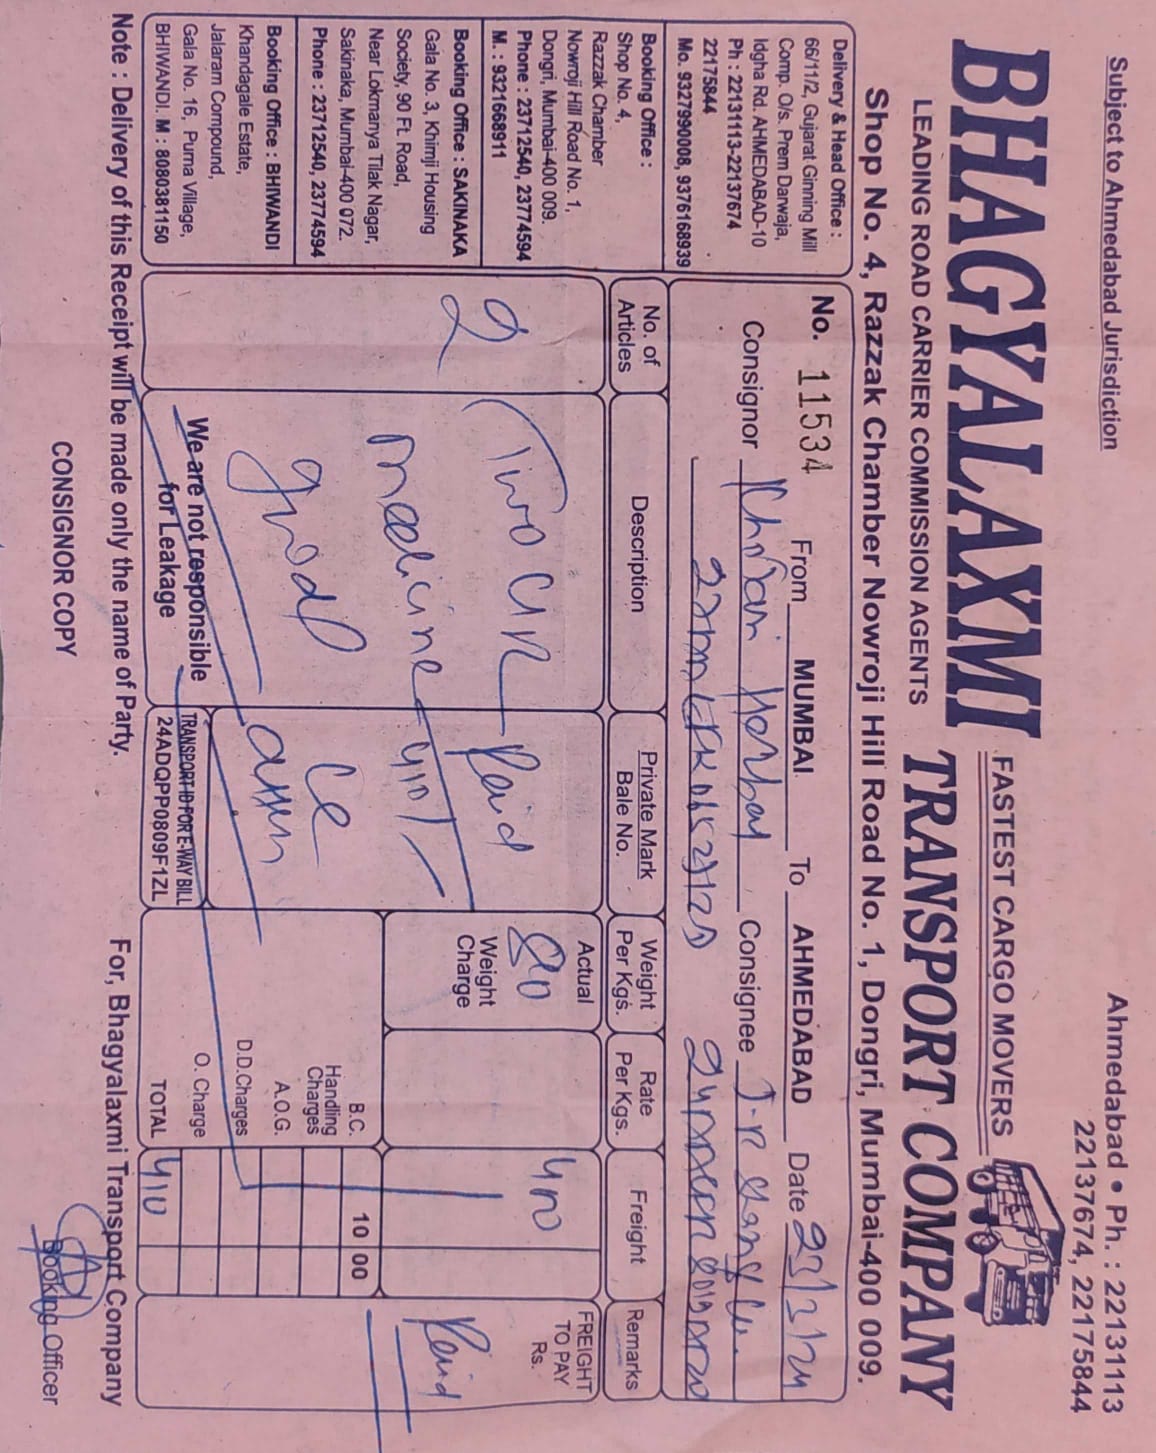 Subject to Ahmedabad Jurisdiction
Ahmedabad • Ph. : 22131113
22137674, 22175844
BHAGYALAXMI
FASTEST CARGO MOVERS
TRANSPORT COMPANY
LEADING ROAD CARRIER COMMISSION AGENTS
Shop No. 4, Razzak Chamber Nowroji Hill Road No. 1, Dongri, Mumbai-400 009.
Delivery & Head Office :
66/11/2, Gujarat Ginning Mill
Comp. O/s. Prem Darwaja,
Idgha Rd. AHMEDABAD-10
Ph : 22131113-22137674
22175844
Mo. 9327990008, 9376168939
Booking Office :
Shop No. 4,
Razzak Chamber
Nowroji Hill Road No. 1,
Dongri, Mumbai-400 009.
Phone : 23712540, 23774594
M. : 9321668911
Booking Office : SAKINAKA
Gala No. 3, Khimji Housing
Society, 90 Ft. Road,
Near Lokmanya Tilak Nagar,
Sakinaka, Mumbai-400 072.
Phone : 23712540, 23774594
Booking Office : BHIWANDI
Khandagale Estate,
Jalaram Compound,
Gala No. 16, Purna Village,
BHIWANDI. M : 8080381150
No. 11534 From MUMBAI To AHMEDABAD Date
Consignor Consignee
No. of Articles
Description
Private Mark
Bale No.
Weight Per Kgs.
Rate Per Kgs.
Freight
Remarks
2
Two
Paid
Actual
80
400
FREIGHT TO PAY Rs.
Medicine
410/
Weight Charge
Paid
good
B.C. 10 00
Handling Charges
A.O.G.
D.D.Charges
O. Charge
TOTAL 410
We are not responsible
for Leakage
TRANSPORT ID FOR E-WAY BILL
24ADQPP0809F1ZL
Note : Delivery of this Receipt will be made only the name of Party.
For, Bhagyalaxmi Transport Company
CONSIGNOR COPY
Booking Officer